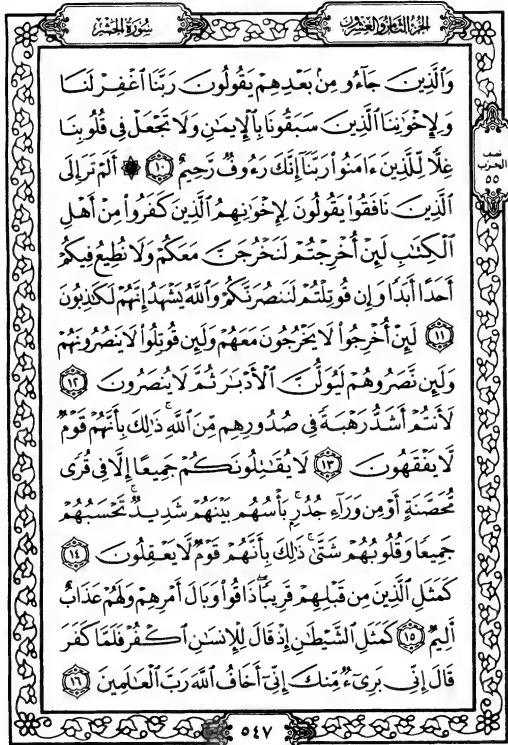 سُورَةُ الحَشْرِ
الجُزْءُ الثَّامِنُ وَالعِشْرُونَ
وَالَّذِينَ جَآءُو مِنۢ بَعْدِهِمْ يَقُولُونَ رَبَّنَا ٱغْفِرْ لَنَا
وَلِإِخْوَٰنِنَا ٱلَّذِينَ سَبَقُونَا بِٱلْإِيمَٰنِ وَلَا تَجْعَلْ فِى قُلُوبِنَا
غِلًّا لِّلَّذِينَ ءَامَنُوا۟ رَبَّنَآ إِنَّكَ رَءُوفٌ رَّحِيمٌ ١٠ ۞ أَلَمْ تَرَ إِلَى
ٱلَّذِينَ نَافَقُوا۟ يَقُولُونَ لِإِخْوَٰنِهِمُ ٱلَّذِينَ كَفَرُوا۟ مِنْ أَهْلِ
ٱلْكِتَٰبِ لَئِنْ أُخْرِجْتُمْ لَنَخْرُجَنَّ مَعَكُمْ وَلَا نُطِيعُ فِيكُمْ
أَحَدًا أَبَدًا وَإِن قُوتِلْتُمْ لَنَنصُرَنَّكُمْ وَٱللَّهُ يَشْهَدُ إِنَّهُمْ لَكَٰذِبُونَ
١١ لَئِنْ أُخْرِجُوا۟ لَا يَخْرُجُونَ مَعَهُمْ وَلَئِن قُوتِلُوا۟ لَا يَنصُرُونَهُمْ
وَلَئِن نَّصَرُوهُمْ لَيُوَلُّنَّ ٱلْأَدْبَٰرَ ثُمَّ لَا يُنصَرُونَ ١٢
لَأَنتُمْ أَشَدُّ رَهْبَةً فِى صُدُورِهِم مِّنَ ٱللَّهِ ۚ ذَٰلِكَ بِأَنَّهُمْ قَوْمٌ
لَّا يَفْقَهُونَ ١٣ لَا يُقَٰتِلُونَكُمْ جَمِيعًا إِلَّا فِى قُرًى
مُّحَصَّنَةٍ أَوْ مِن وَرَآءِ جُدُرٍۭ ۚ بَأْسُهُم بَيْنَهُمْ شَدِيدٌ ۚ تَحْسَبُهُمْ
جَمِيعًا وَقُلُوبُهُمْ شَتَّىٰ ۚ ذَٰلِكَ بِأَنَّهُمْ قَوْمٌ لَّا يَعْقِلُونَ ١٤
كَمَثَلِ ٱلَّذِينَ مِن قَبْلِهِمْ قَرِيبًا ۖ ذَاقُوا۟ وَبَالَ أَمْرِهِمْ وَلَهُمْ عَذَابٌ
أَلِيمٌ ١٥ كَمَثَلِ ٱلشَّيْطَٰنِ إِذْ قَالَ لِلْإِنسَٰنِ ٱكْفُرْ فَلَمَّا كَفَرَ
قَالَ إِنِّى بَرِىٓءٌ مِّنكَ إِنِّىٓ أَخَافُ ٱللَّهَ رَبَّ ٱلْعَٰلَمِينَ ١٦
نصف
الحزب
٥٥
٥٤٧